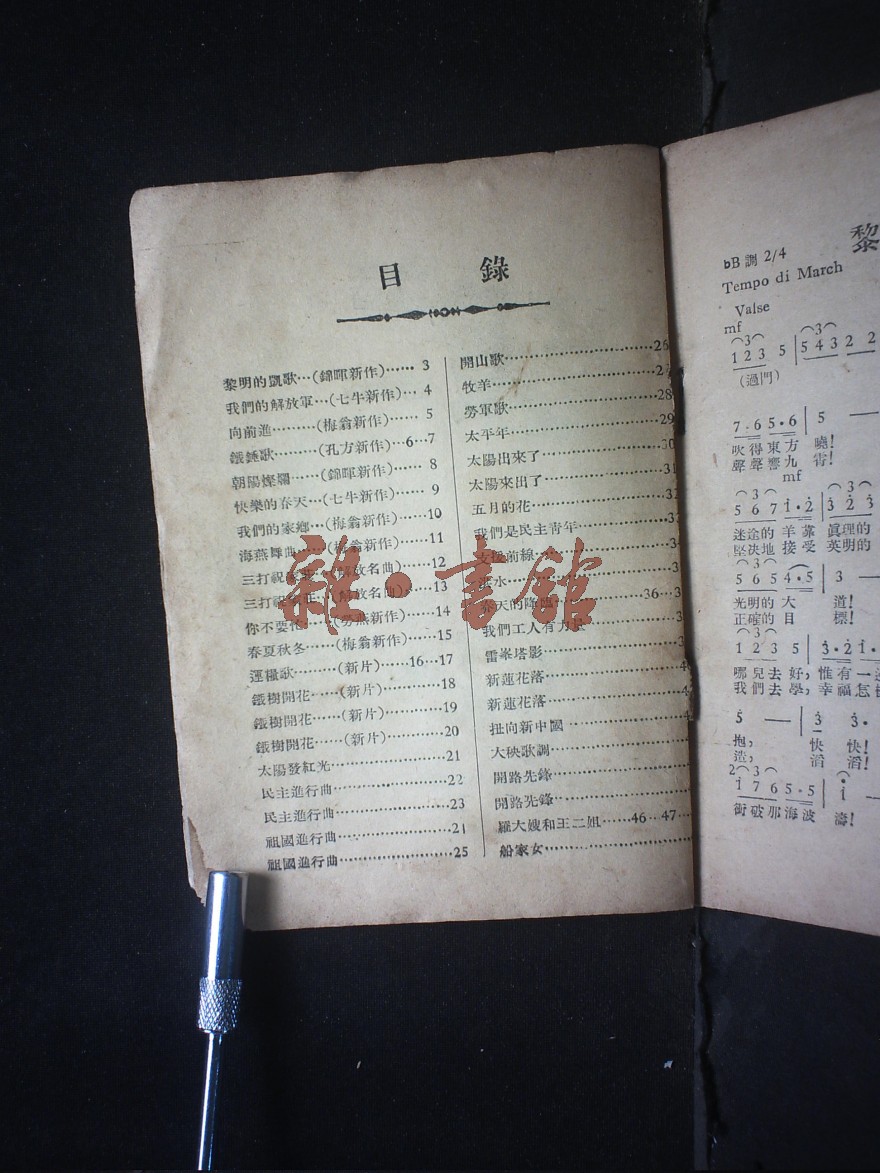 目 錄
黎明的凱歌…(錦暉新作)…… 3
我們的解放軍…(七牛新作)… 4
向前進………(梅翁新作)…… 5
鐵錘歌………(孔方新作)…6…7
朝陽燦爛……(錦暉新作)…… 8
快樂的春天…(七牛新作)…… 9
我們的家鄉…(梅翁新作)……10
海燕舞曲……(梅翁新作)……11
三打祝家莊…(解放名曲)……12
三打祝家莊…(解放名曲)……13
你不要忙……(勞燕新作)……14
春夏秋冬……(梅翁新作)……15
運糧歌………(新片)……16…17
鐵樹開花……(新片)………18
鐵樹開花……(新片)………19
鐵樹開花……(新片)………20
太陽發紅光………………21
民主進行曲………………22
民主進行曲………………23
祖國進行曲………………21
祖國進行曲………………25
開山歌………………26
牧羊………………27
勞軍歌………………28
太平年………………29
太陽出來了………………30
太陽來出了………………31
五月的花………………32
我們是民主青年………………33
支援前線………………3
洪水………………3
春天的降臨………36…3
我們工人有力量………3
雷峯塔影………………3
新蓮花落………………4
新蓮花落………………4
扭向新中國………………4
大秧歌調………………
開路先鋒………………
開路先鋒………………
羅大嫂和王二姐……46…47…
船家女………………
雜·書館
黎
bB調 2/4
Tempo di March
Valse
mf
1 2 3 5 | 5 4 3 2 2
(過門)
7·6 5·6 | 5 —
吹得東方 曉!
聲聲響九 霄!
mf
5 6 7 1·2 | 3 2 3
迷途的 羊羣 眞理的
堅決地 接受 英明的
5 6 5 4·5 | 3 —
光明的大 道!
正確的目 標!
1 2 3 5 | 3·2 1·
哪兒去好,惟有一
我們去學,幸福怎
5 — | 3 3·
抱, 快 快!
造, 滔 滔!
1 7 6 5·5 | 1 —
衝破那海波 濤!